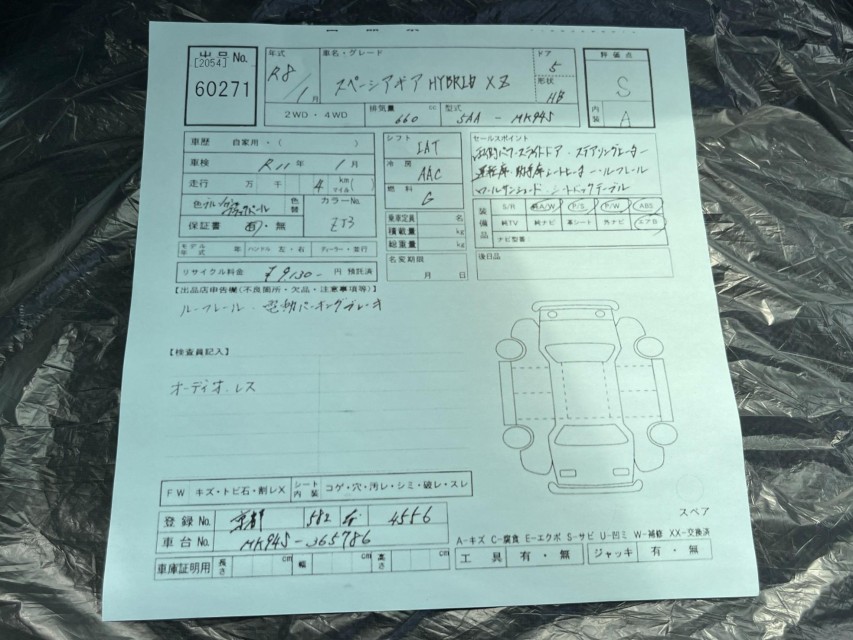 出品 No.
[2054]
60271
年式
R8/1月
車名・グレード
スペーシアギア HYBRID XZ
ドア
5
形状
HB
評価点
S
内装
A
2WD・4WD
排気量 660 cc
型式 5AA - MK94S
車歴 自家用・( )
車検 R11年 1月
走行 万 千 4 km( ) マイル
色替
カラーNo.
ZJ3
保証書 有・無
モデル年式 年 ハンドル 左・右 ディーラー・並行
リサイクル料金 ¥9130- 円 預託済
シフト
IAT
冷房
AAC
燃料
G
乗車定員 名
積載量 kg
総重量 kg
名変期限
月 日
セールスポイント
両側パワースライドドア・ステアリングヒーター
運転席・助手席シートヒーター・ルーフレール
ロールサンシェード・シートバックテーブル
装備品
S/R A/W P/S P/W ABS
純TV 純ナビ 革シート 外ナビ エアB
ナビ型番
後日品
【出品店申告欄(不良箇所・欠品・注意事項等)】
ルーフレール・電動パーキングブレーキ
【検査員記入】
オーディオレス
FW キズ・トビ石・割レX
シート内装 コゲ・穴・汚レ・シミ・破レ・スレ
登録No. 京都 582 4556
車台No. MK94S-365786
車庫証明用 長さ cm 幅 cm 高さ cm
スペア
A-キズ C-腐食 E-エクボ S-サビ U-凹ミ W-補修 XX-交換済
工具 有・無 ジャッキ 有・無